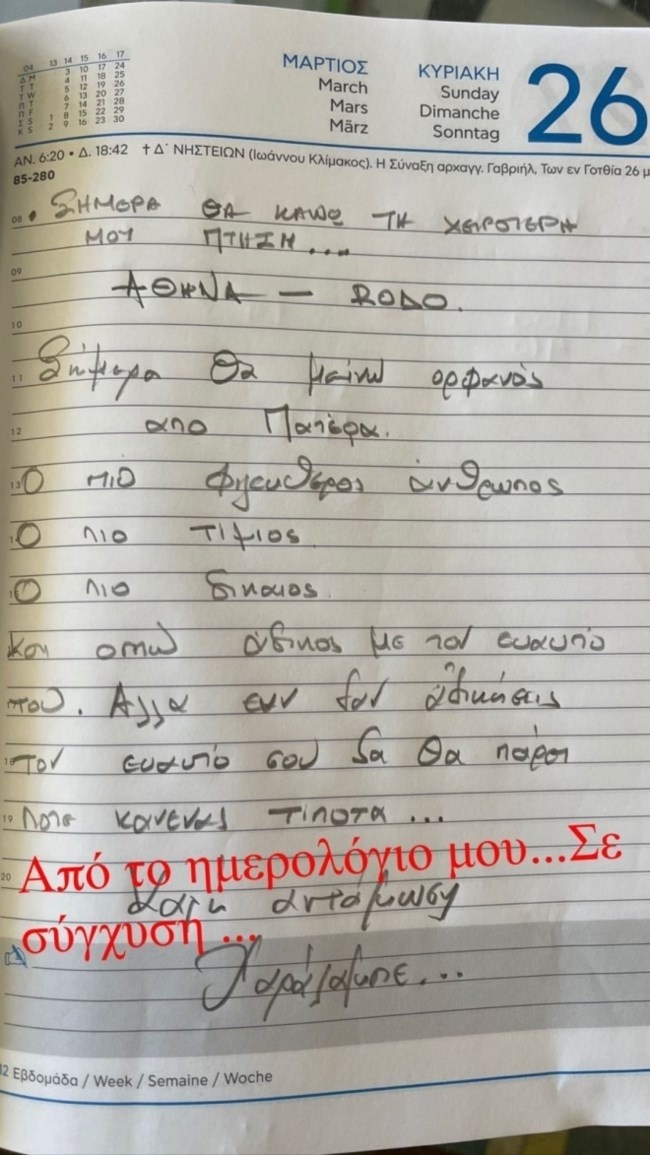 04 13 14 15 16 17
Δ M 3 10 17 24
T T 4 11 18 25
T W 5 12 19 26
Π T 6 13 20 27
Π F 7 14 21 28
Σ S 1 8 15 22 29
Κ S 2 9 16 23 30
ΜΑΡΤΙΟΣ
March
Mars
März
ΚΥΡΙΑΚΗ
Sunday
Dimanche
Sonntag
26
ΑΝ. 6:20 • Δ. 18:42 ✝ Δ΄ ΝΗΣΤΕΙΩΝ (Ιωάννου Κλίμακος). Η Σύναξη αρχαγγ. Γαβριήλ, Των εν Γοτθία 26 μ
85-280
08 • ΣΗΜΕΡΑ ΘΑ ΚΑΝΩ ΤΗ ΧΕΙΡΟΤΕΡΗ
ΜΟΥ ΠΤΗΣΗ....
09
ΑΘΗΝΑ — RODO.
10
11 Σήμερα θα μείνω ορφανός
12 απο Πατέρα.
13 Ο πιο ελευθερος άνθρωπος
Ο πιο τίμιος
Ο πιο δικαιος.
Και άδικος με τον ευαυτο
του. Αλλα εαν δεν αδικήσεις
18 Τον ευαυτό σου δα θα πάρει
19 Ποτε κανενας τιποτα...
20 Από το ημερολόγιο μου...Σε
Καλη ανταμωση
σύγχυση ...
12 Εβδομάδα / Week / Semaine / Woche